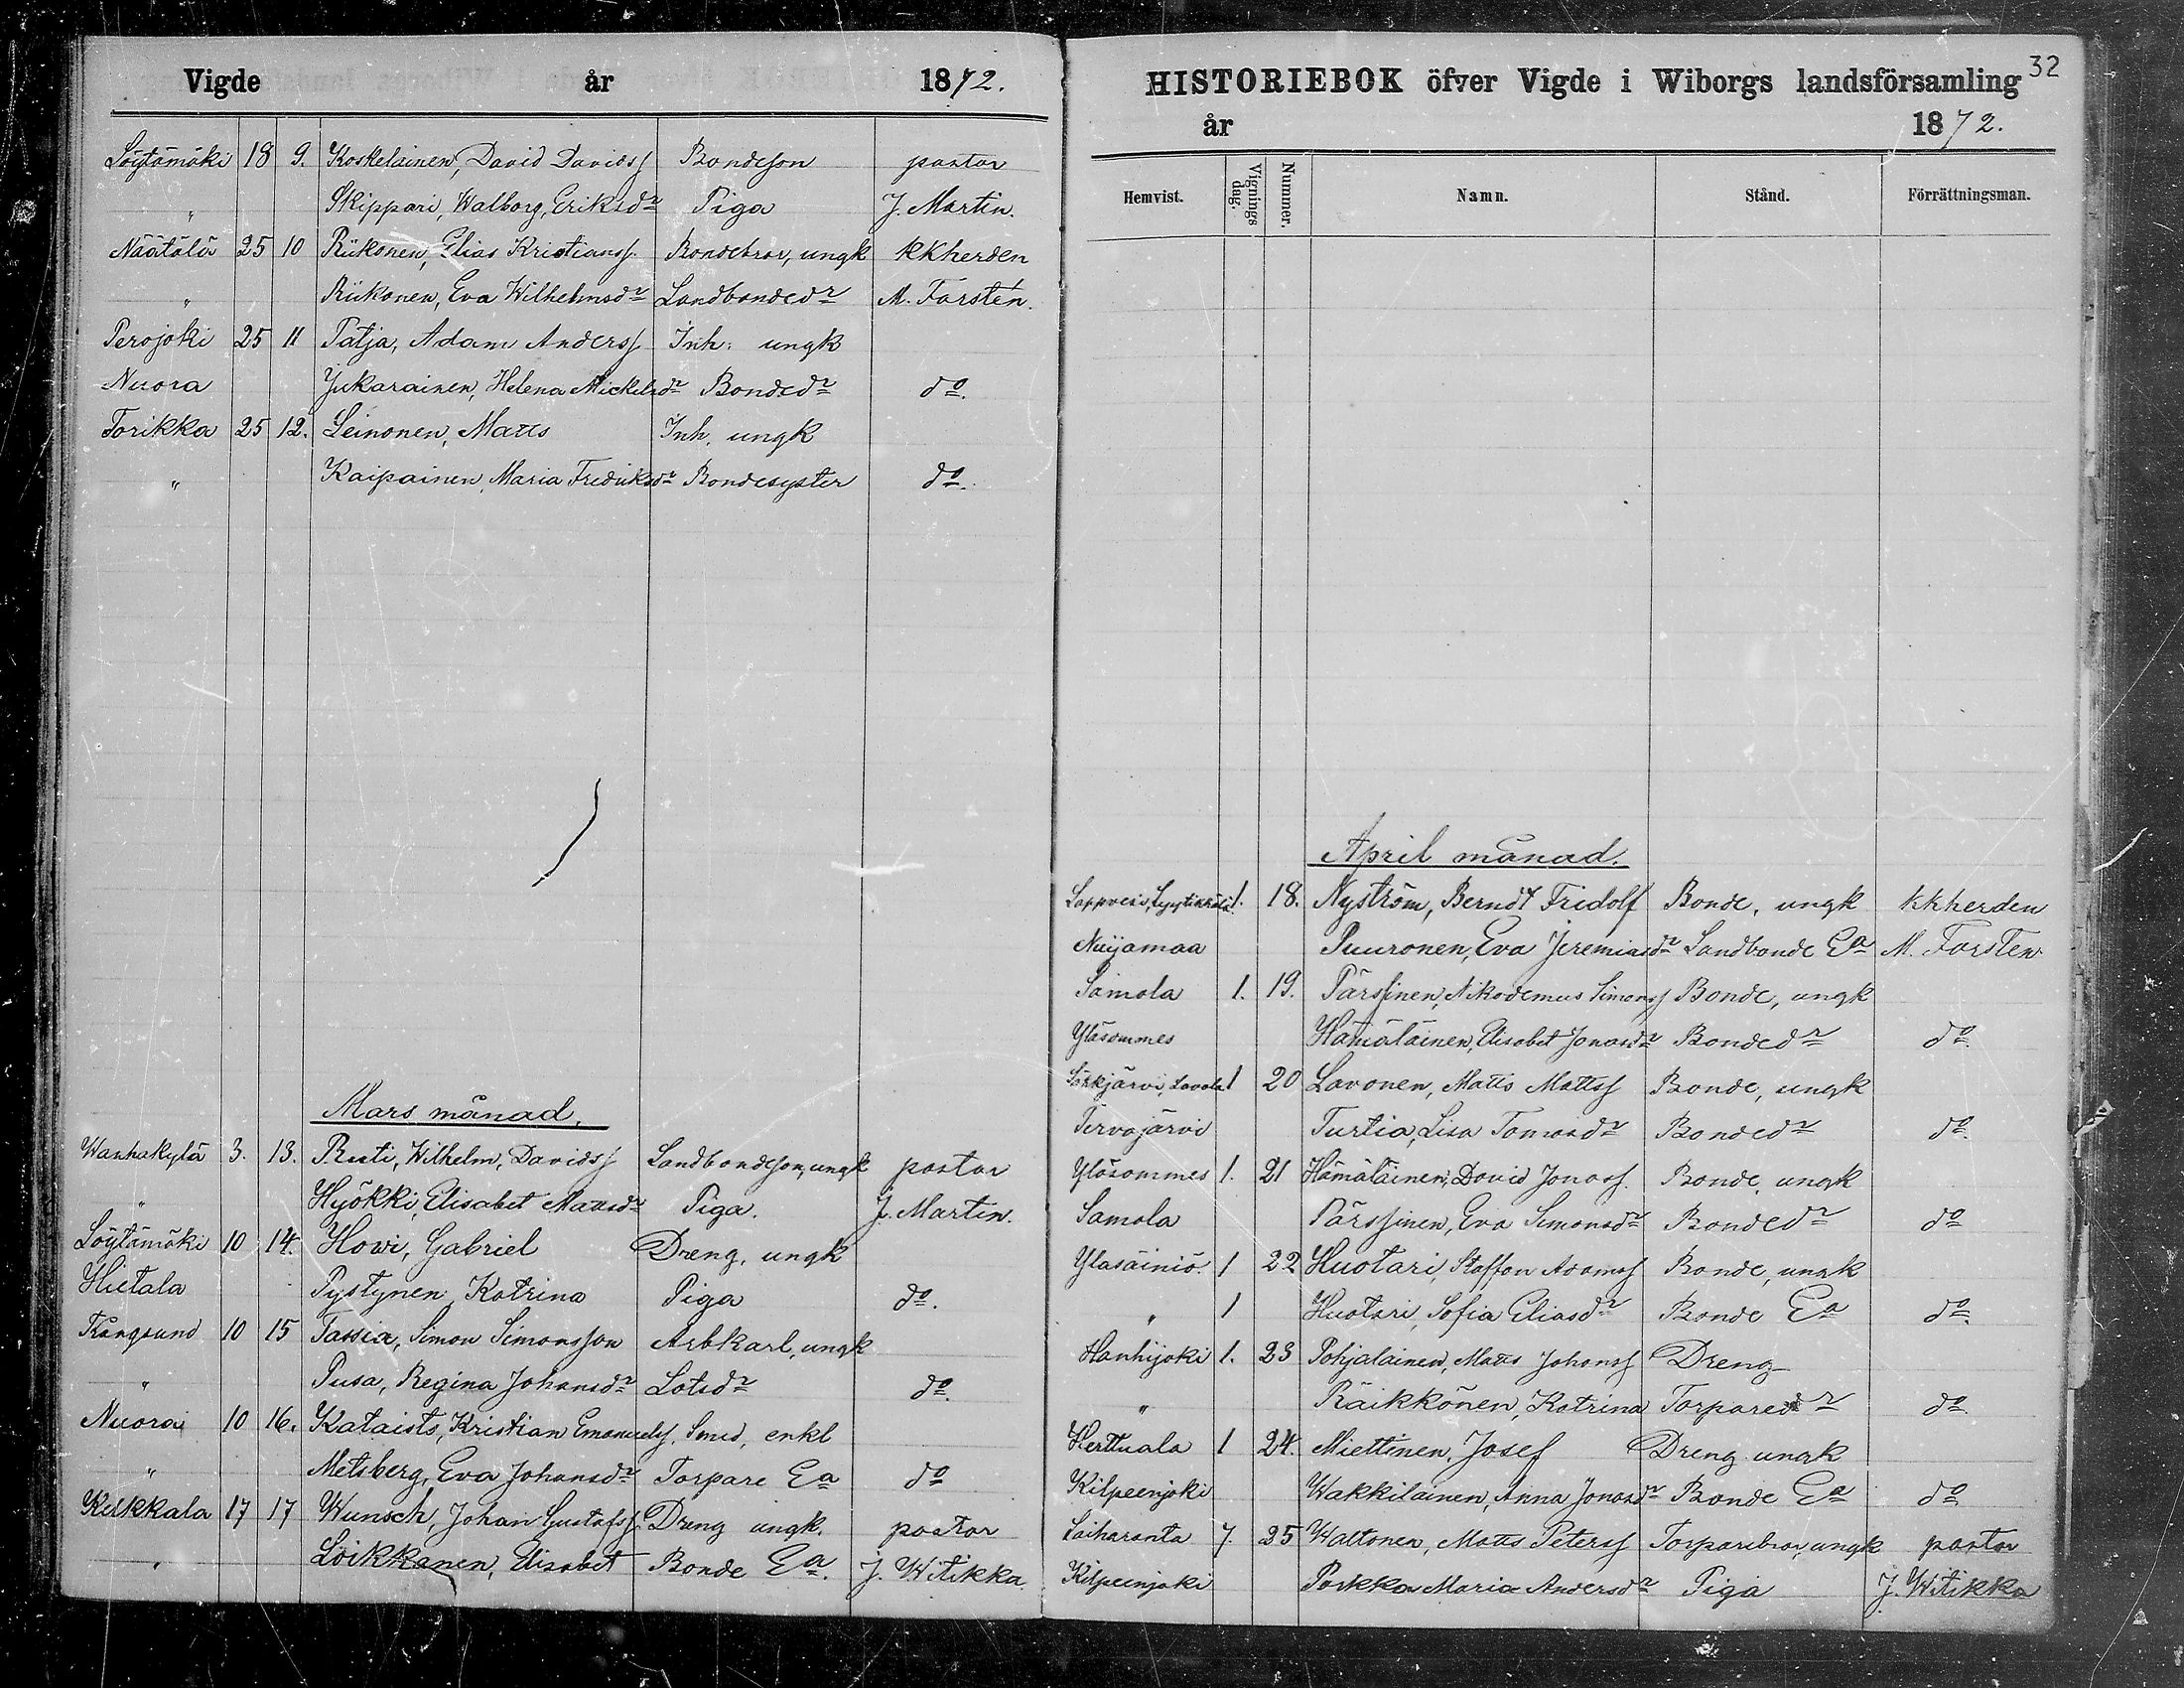 Vigde år 1872.
Löytämäki 18 9. Koskelainen, David Davidsſ Bondeson pastor
" Skippari, Walborg, Eriksdr Piga J. Martin.
Näätälä 25 10 Riikonen, Elias Kristiansſ. Bondebror, ungk kkherden
" Riikonen, Eva Wilhelmsdr Landbondedr M. Forstén.
Perojoki 25 11 Patja, Adam Andersſ Inh. ungk
Nuora Jukarainen, Helena Mickelsdr Bondedr do.
Torikka 25 12. Leinonen, Matts Inh. ungk
" Kaipainen, Maria Fredriksdr Bondesyster do.
Mars månad.
Wanhakylä 3. 13. Ruti, Wilhelm, Davidsſ Landbondeson, ungk pastor
" Hyökki, Elisabet Mattsdr Piga. J. Martin.
Löytämäki 10 14. Howi, Gabriel Dreng, ungk
Hietala Pystynen Katrina Piga do.
Trångsund 10 15 Tassia, Simon Simonsson Arbkarl, ungk
" Pusa, Regina Johansdr Lotsdr do.
Nuora 10 16. Kataists, Kristian Emanuelsſ. Smed, enkl
" Metsberg, Eva Johansdr Torpare Ea do
Kerkkala 17 17 Wunsch, Johan Gustafsſ. Dreng ungk. pastor
" Loikkanen, Elisabet Bonde Ea. J. Witikka
32
HISTORIEBOK öfver Vigde i Wiborgs landsförsamling
år 1872.
Hemvist. Vignings dag. Nummer. Namn. Stånd. Förrättningsman.
April månad.
Lappvesi, Lyytikkälä 1. 18. Nyström, Berndt Fridolf Bonde, ungk kkherden
Nuijamaa Puuronen, Eva Jeremiasdr Landbonde Ea M. Forsten
Samola 1. 19. Pärssinen, Nikodemus Simonsſ Bonde, ungk
Yläsommes Hämäläinen, Elisabet Jonasdr Bondedr do.
Särkjärvi, Lavola 1 20 Lavonen, Matts Mattsſ Bonde, ungk
Tervajärvi Turtia, Lisa Tomasdr Bondedr do.
Yläsommes 1. 21 Hämäläinen, David Jonasſ. Bonde, ungk
Samola Pärssinen, Eva Simonsdr Bondedr do
Yläsäiniö. 1 22 Huotari, Staffan Adamsſ Bonde, ungk
" 1 Huotari, Sofia Eliasdr Bonde Ea do.
Hanhijoki 1. 23 Pohjalainen, Matts Johansſ Dreng
" Räikkönen, Katrina Torparedr do.
Herttuala 1 24. Miettinen, Josef Dreng ungk
Kilpeenjoki Wakkilainen, Anna Jonasdr Bonde Ea do
Laiharanta 7. 25 Waltonen, Matts Petersſ Torparebror, ungk pastor
Kilpeenjoki Porkka Maria Andersdr Piga J. Witikka